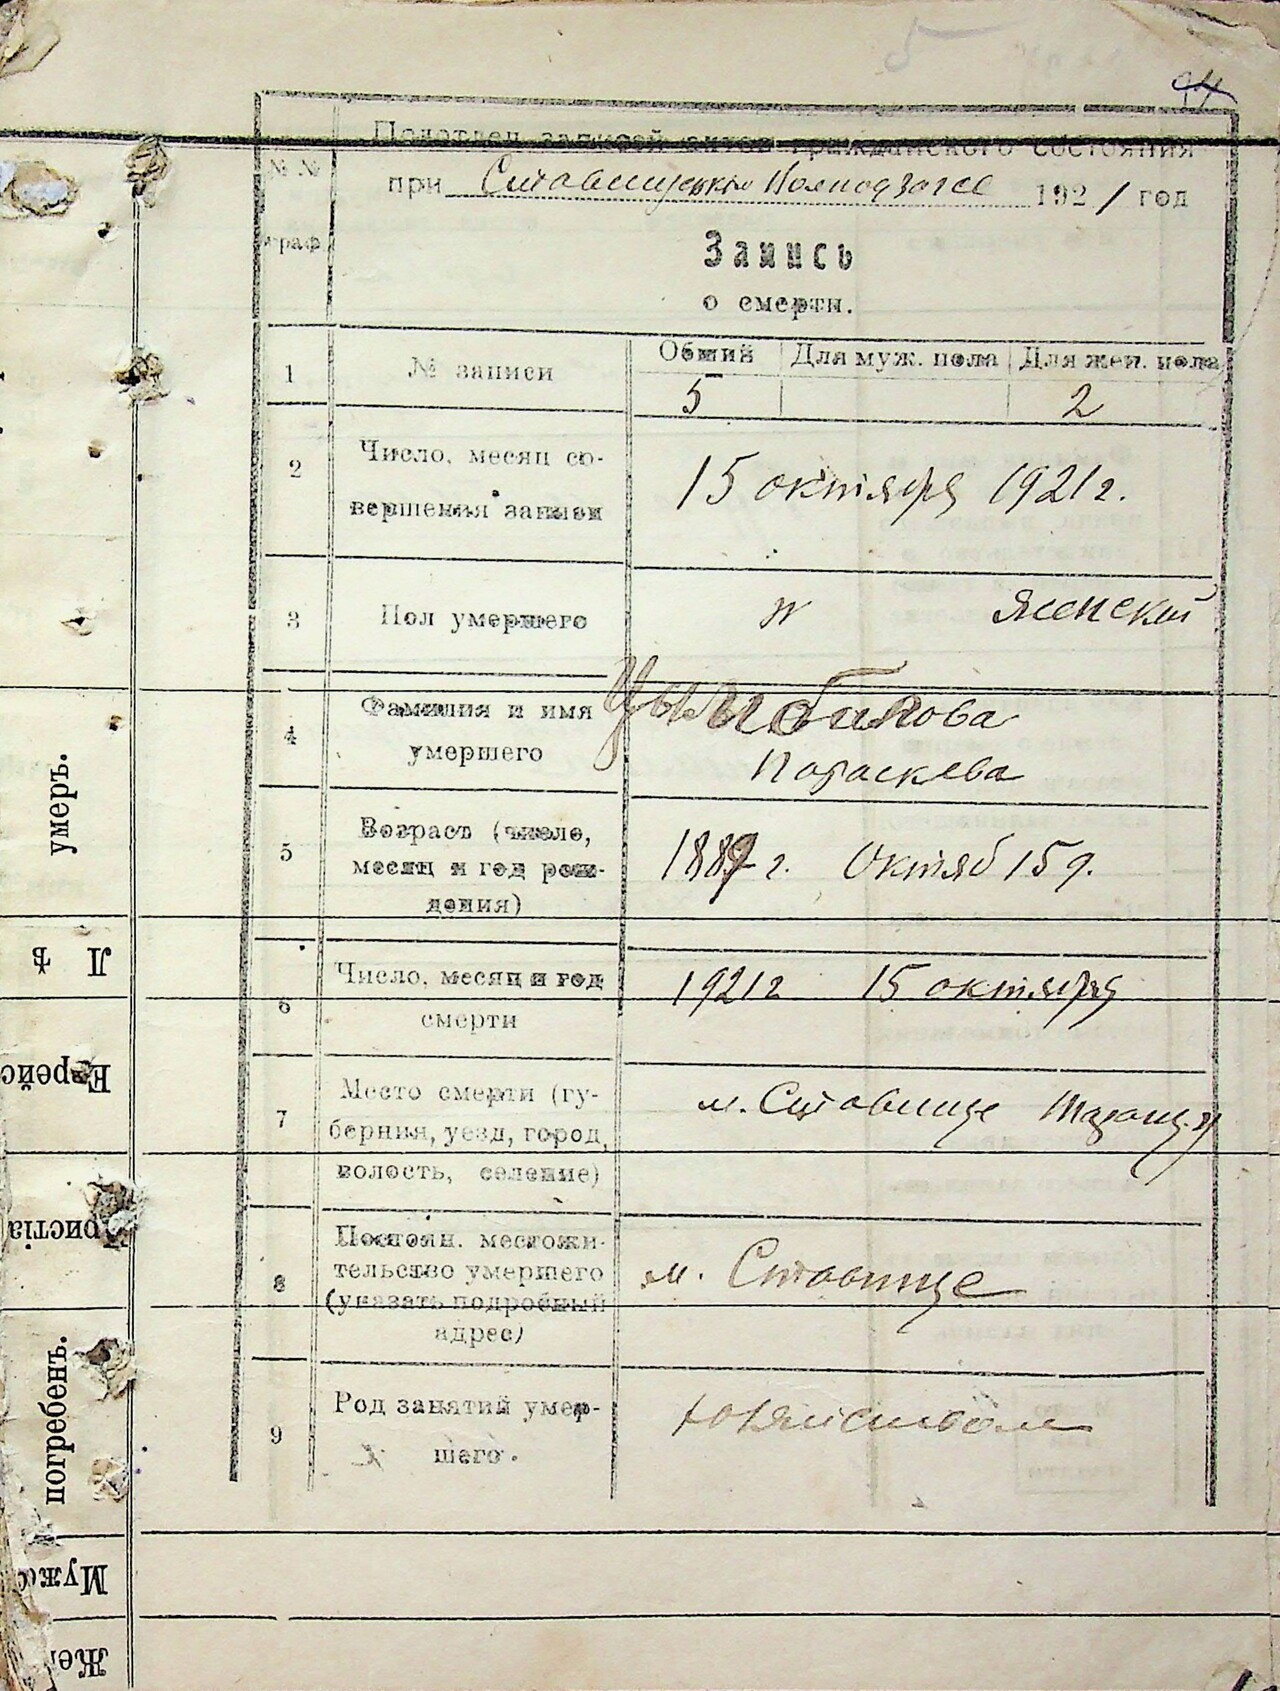 5
94
Подотдел записей актов гражданского состояния
№ №
граф
при Ставищенском 1921 год
Запись
о смерти.
1 № записи
Общий Для муж. пола Для жен. пола
5 2
2 Число, месяц со-
вершения записи
15 октября 1921 г.
3 Пол умершего
ж женской
4 Фамилия и имя
умершего
Параскева
5 Возраст (число,
месяц и год рож-
дения)
г. Октяб 15 д.
6 Число, месяц и год
смерти
1921 г 15 октября
7 Место смерти (гу-
берния, уезд, город,
волость, селение)
м. Ставище Таращ. у
8 Постоян. местожи-
тельство умершего
(указать подробный
адрес)
м. Ставище
9 Род занятий умер-
шего.
хозяйством
умеръ.
Л ѣ
Еврейс
ристіа
погребенъ.
Мужс
Же